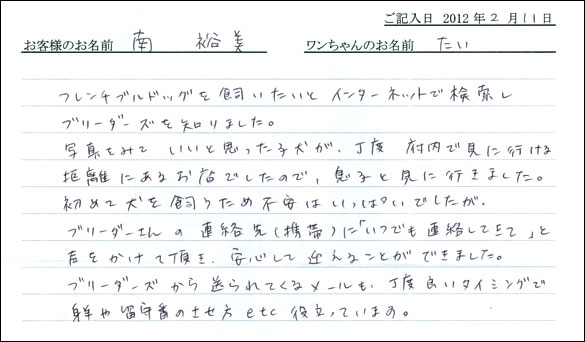 ご記入日 2012年2月11日
お客様のお名前 南 裕美 ワンちゃんのお名前 たい
フレンチブルドッグを飼いたいと インターネットで検索し
ブリーダーズを知りました。
写真をみて いいと思った子犬が、丁度 府内で見に行ける
距離にあるお店でしたので、息子と見に行きました。
初めて犬を飼うため不安はいっぱいでしたが、
ブリーダーさんの連絡先(携帯)に「いつでも連絡してきて」と
声をかけて頂き、安心して迎えることができました。
ブリーダーズから送られてくるメールも、丁度良いタイミングで
躾や留守番のさせ方etc役立っています。